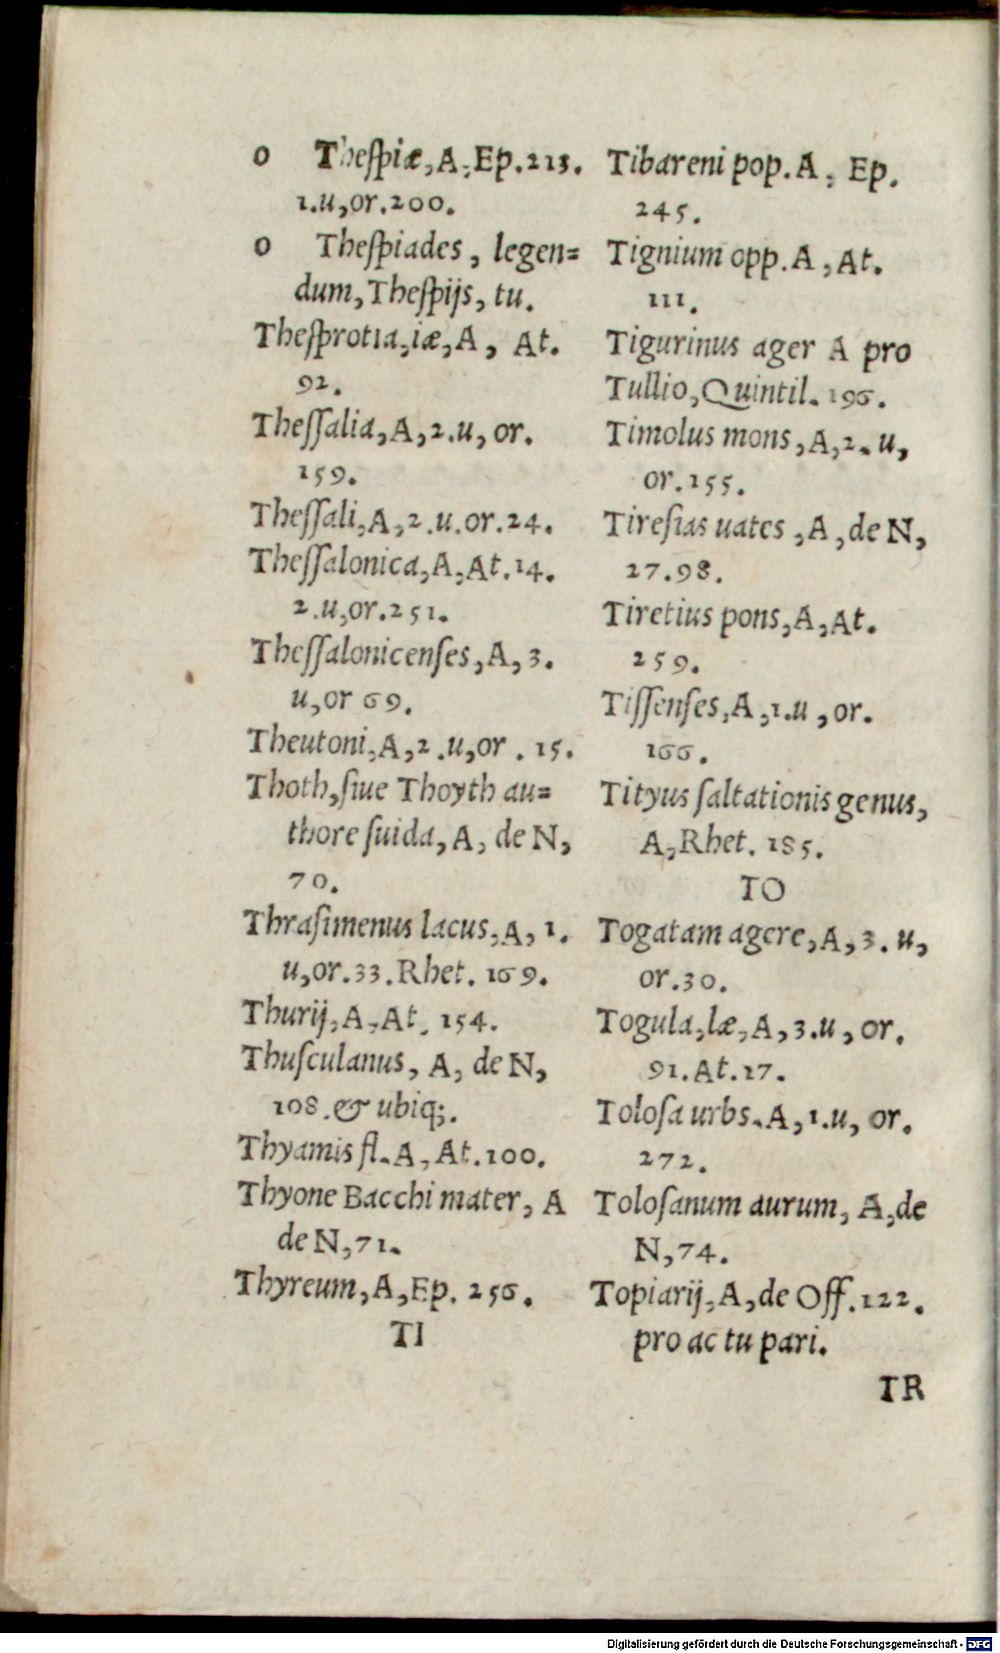 o Theſpiæ, A, Ep. 213.
1. u, or. 200.
o Theſpiades, legen=
dum, Theſpijs, tu.
Theſprotia, iæ, A, At.
92.
Theſſalia, A, 2. u, or.
159.
Theſſali, A, 2. u. or. 24.
Theſſalonica, A, At. 14.
2. u, or. 251.
Theſſalonicenſes, A, 3.
u, or 69.
Theutoni, A, 2. u, or. 15.
Thoth, ſiue Thoyth au=
thore ſuida, A, de N,
70.
Thraſimenus lacus, A, 1.
u, or. 33. Rhet. 169.
Thurij, A, At. 154.
Thuſculanus, A, de N,
108. & ubiq;.
Thyamis fl. A, At. 100.
Thyone Bacchi mater, A
de N, 71.
Thyreum, A, Ep. 256.
TI
Tibareni pop. A, Ep.
245.
Tignium opp. A, At.
111.
Tigurinus ager A pro
Tullio, Quintil. 196.
Timolus mons, A, 2. u,
or. 155.
Tireſias uates, A, de N,
27. 98.
Tiretius pons, A, At.
259.
Tiſſenſes, A, 1. u, or.
166.
Tityus ſaltationis genus,
A, Rhet. 185.
TO
Togatam agere, A, 3. u,
or. 30.
Togula, læ, A, 3. u, or.
91. At. 17.
Toloſa urbs. A, 1. u, or.
272.
Toloſanum aurum, A, de
N, 74.
Topiarij, A, de Off. 122.
pro ac tu pari.
TR
Digitalisierung gefördert durch die Deutsche Forschungsgemeinschaft - DFG